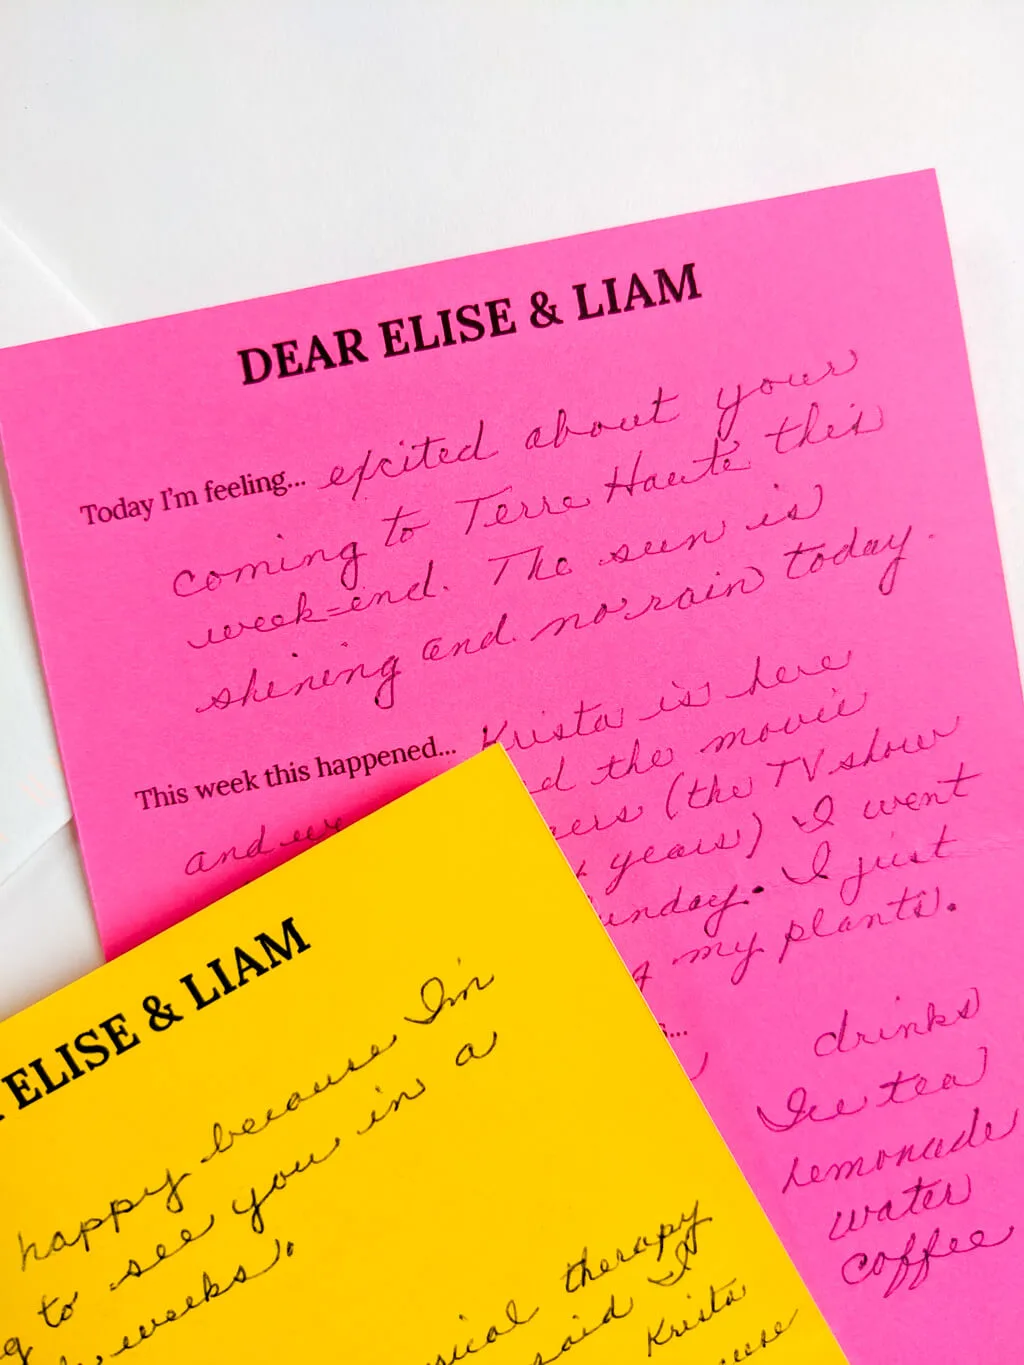 DEAR ELISE & LIAM
Today I'm feeling... excited about your
coming to Terre Haute this
week-end. The sun is
shining and no rain today.
This week this happened... Krista is here
and the movie
(the TV show
years) I went
Sunday. I just
my plants.
drinks
Ice tea
lemonade
water
coffee
ELISE & LIAM
happy because I'm
to see you in a
weeks.
therapy
said I
Krista